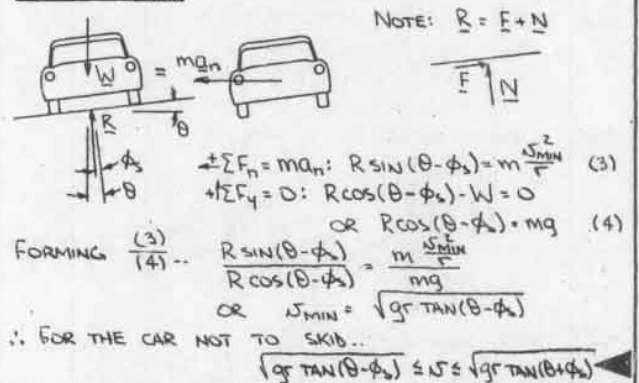 NOTE: R = F + N
W
= man
F
N
θ
R
φs
θ
±ΣFn = man: R SIN(θ-φs) = m v²MIN/r (3)
+↑ΣFy = 0: R cos(θ-φs) - W = 0
OR R cos(θ-φs) = mg (4)
FORMING (3)/(4) .. R SIN(θ-φs) / R cos(θ-φs) = m v²MIN/r / mg
OR vMIN = √gr TAN(θ-φs)
∴ FOR THE CAR NOT TO SKID..
√gr TAN(θ-φs) ≤ v ≤ √gr TAN(θ+φs)